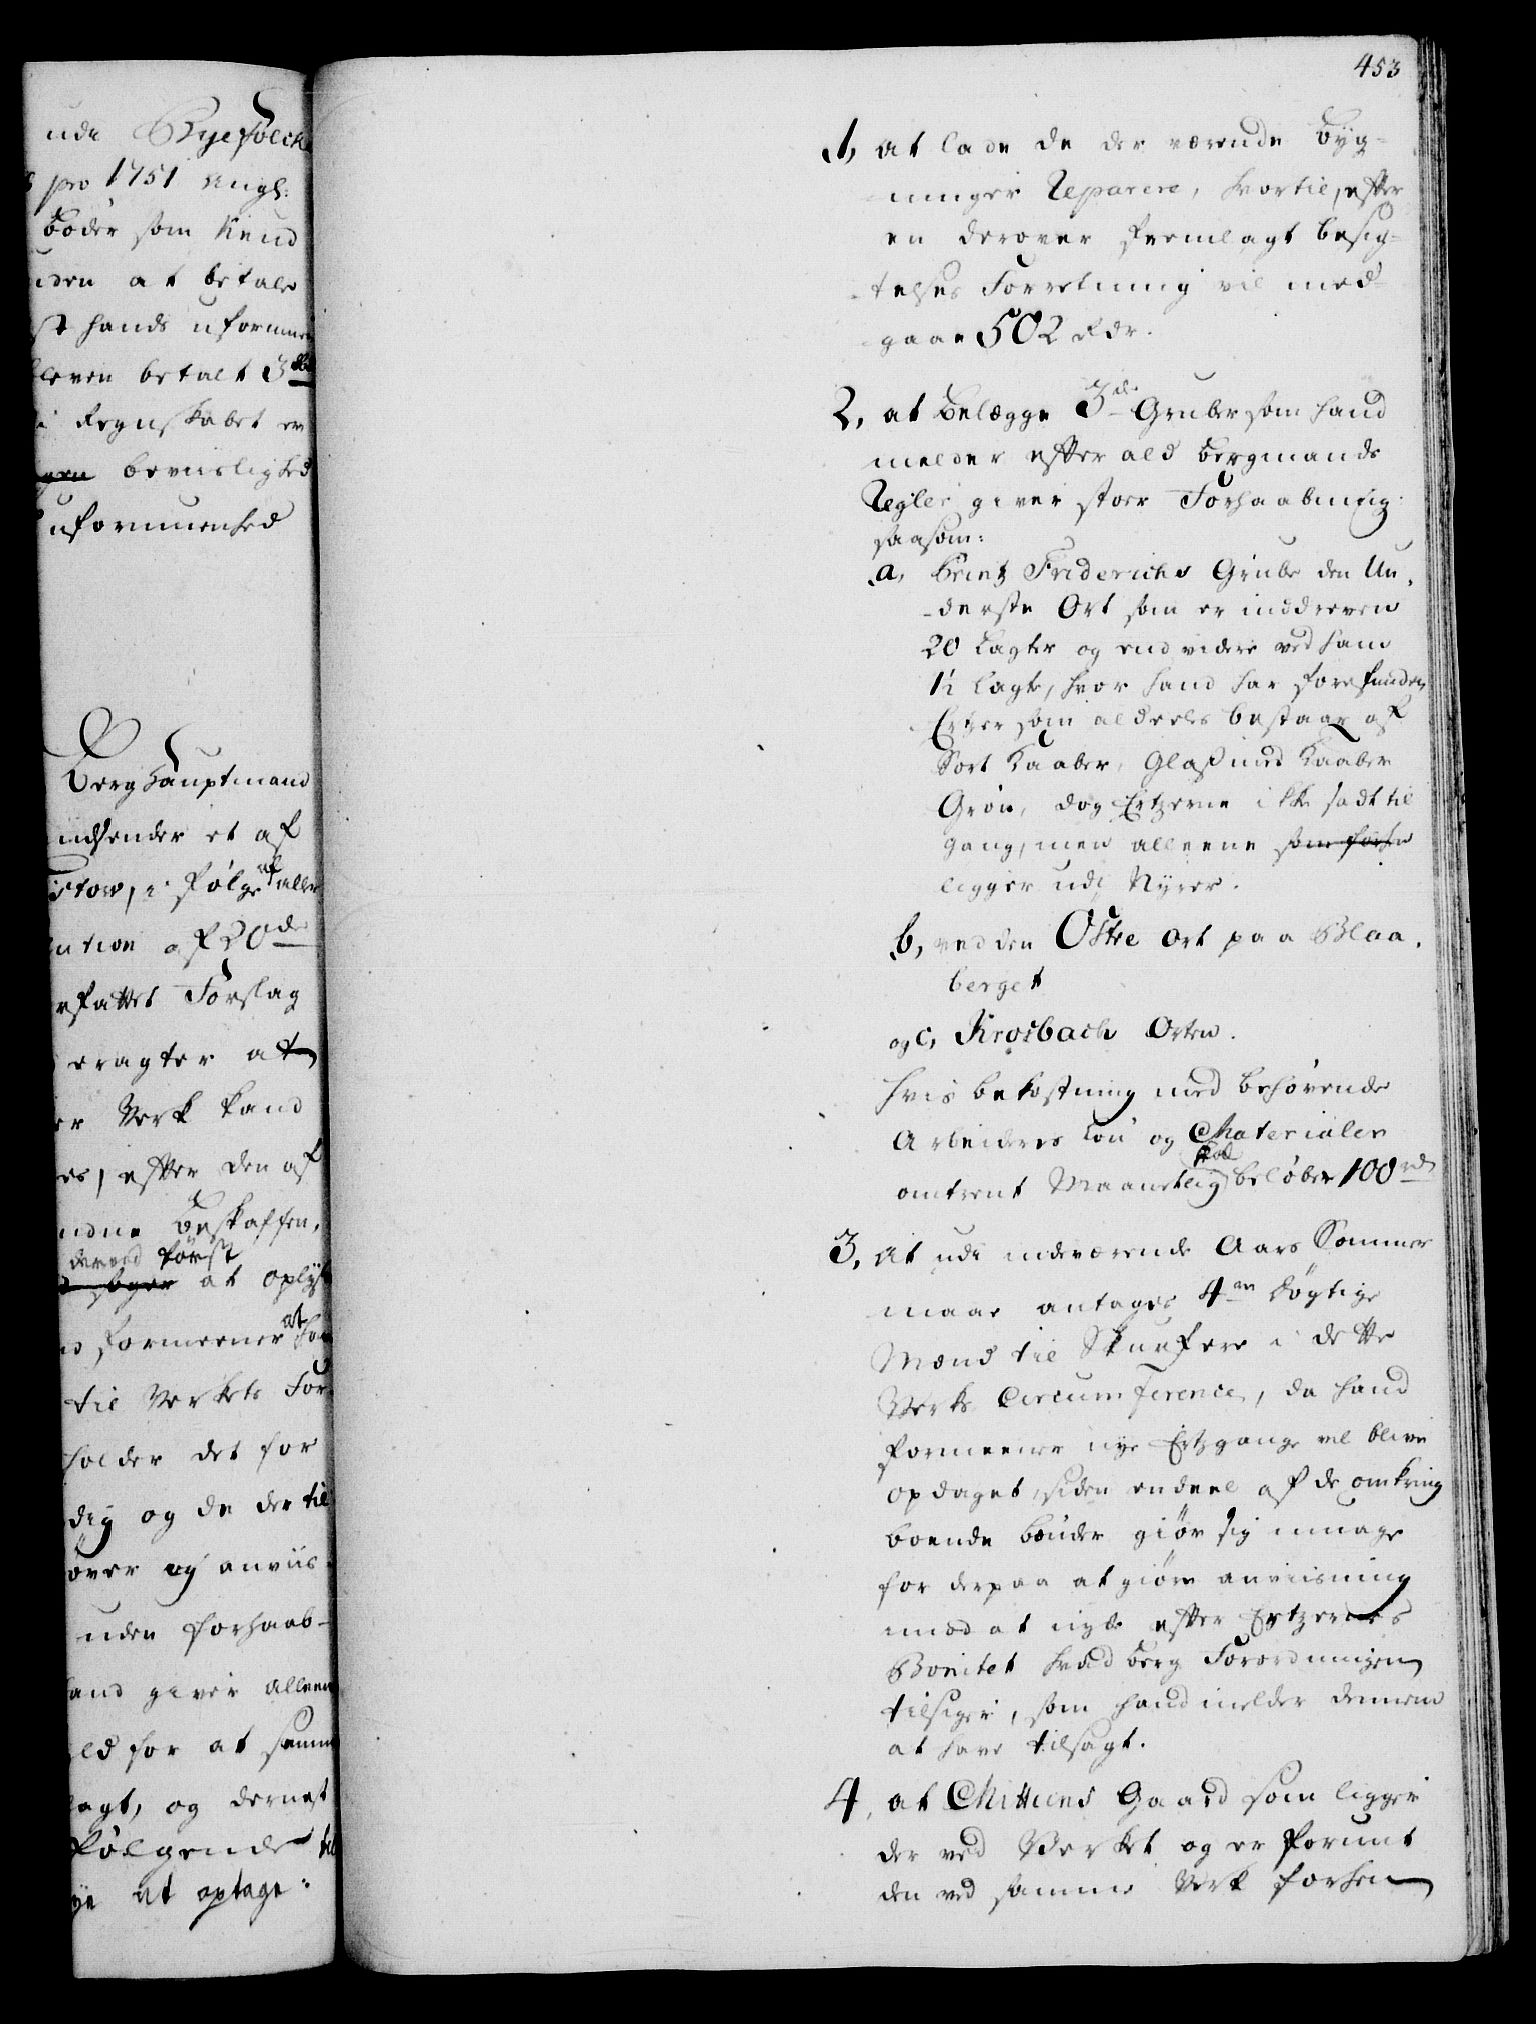 udi Byefolck
pro 1751 angl:
Bøder som Knud
uden at betale
hands uformuen
bleven betalt 3
i Regnskabet er
beviislighed
uformuenhed
Berghauptmand
indsender et af
i følge aller
ution af 20de
rfattet Forslag
eragter at
er Verk kand
es, efter den af
ndne Beskaffen,
derved først
at oplyse
formeener at han
til Verkets For
holder det for
dig og de der til
over og anviis-
uden forhaab-
hand giver alleen
ld for at samme
lagt, og dernest
følgende til
ye at optage:
453
1, at lade de der værende Byg-
ninger Reparere, hvortil, efter
en derover fremlagt besig-
telses Forretning vil med-
gaae 502 Rdr.
2, at belægge 3de Gruber som hand
melder efter all Bergmands
Regler giver stoer Forhaabning
saasom:
a, Printz Friderichs Grube den Un-
derste Ort som er inddreven
20 Lagter og end videre ved ham
1½ lagte, hvor hand har forefunden
Ertzer som aldeeles bestaar af
Sort Kaaber, Glas med Kaaber
Grøn, dog Ertzerne ikke sadt til
gang, men alleene som forhen
ligger udi Nyrer.
b, ved den Østre Ort paa Blaa-
berget
og c, Krosbach Orten.
hvis bekostning med behøvende
Arbeideres Løn og Materialer
omtrent Maanetlig skal beløbe 100 rd
3, at udi indeværende Aars Sommer
maae antages 4re døgtige
Mænd til Skurfere i dette
Verks Circumference, da hand
formeener nye Ertzgange vil blive
opdaget, siden endeel af de omkring
boende bønder giør sig umage
for derpaa at giøre anviisning
mod at nyde efter Ertzernes
Bonitet hvad Berg Forordningen
tilsiger, som hand melder dennem
at have tilsagt.
4, at Mittuns Gaard som ligger
der ved Verket og er forunt
den ved samme Verk forhen